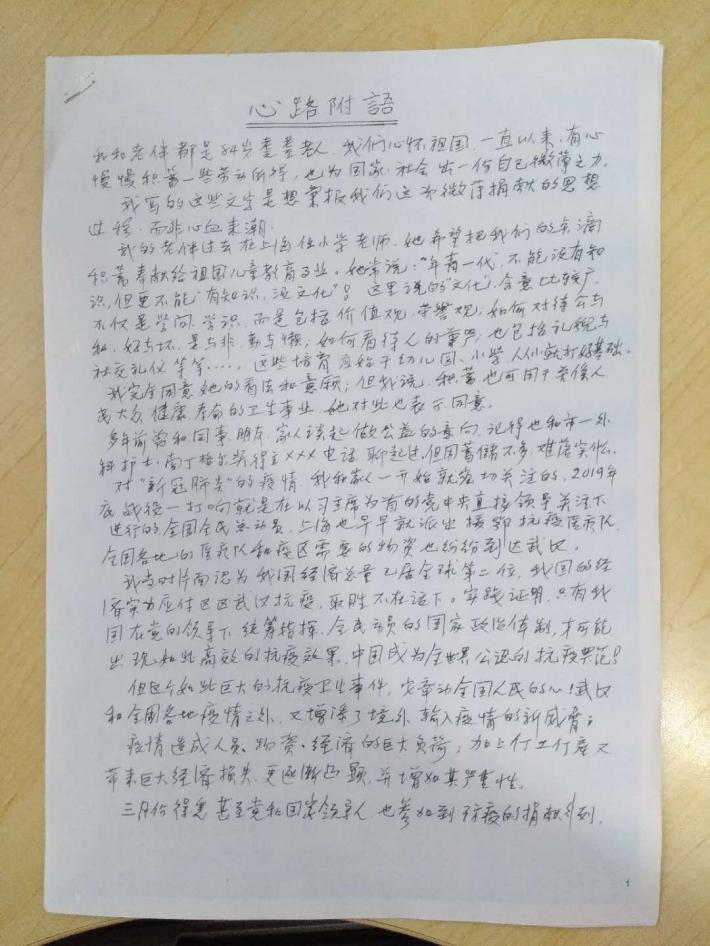 心路附語
我和老伴都是84岁耄耋老人,我们心怀祖国,一直以来,有心
慢慢积蓄一些劳动所得,也为国家、社会出一份自己微薄之力。
我写的这些文字是想禀报我们这次微薄捐献的思想
过程,而非心血来潮。
我的老伴过去在上海任小学老师,她希望把我们的点滴
积蓄奉献给祖国儿童教育事业。她常说:“年青一代,不能没有知
识,但更不能‘有知识,没文化’!这里说的“文化”,含意比较广,
不仅是学问、学识,而是包括价值观、荣誉观;如何对待公与
私、好与坏、是与非、勤与懒;如何看待人的尊严;也包括礼貌与
社交礼仪等等……,这些培育应始于幼儿园、小学,从小就打好基础。
我完全同意她的看法和意願;但我说,积蓄也可用于关係人
民大众健康、寿命的卫生事业,她对此也表示同意。
多年前曾和同事、朋友、家人谈起做公益的意向,记得也和市一外
科护士,南丁格尔奖得主×××电话聊起过,但因蓄储不多,难落实似。
对“新冠肺炎”的疫情,我和家人一开始就密切关注的,2019年
底战役一打响就是在以习主席为首的党中央直接领导关注下
进行的全国全民总动员,上海也早早就派出援鄂抗疫医疗队,
全国各地的医疗队和疫区需要的物资也纷纷到达武汉。
我当时片面認为我国经济总量已居全球第二位,我国的经
济实力应付区区武汉抗疫,取胜不在话下。实践证明,只有我
国在党的领导下,统筹指挥,全民动员的国家政治体制,才可能
出现如此高效的抗疫效果,中国成为全世界公認的抗疫典范!
但这个如此巨大的抗疫卫生事件,牵动全国人民的心!武汉
和全国各地疫情之外,又增添了境外输入疫情的新威脅;
疫情造成人员、物资、经济的巨大负荷;加上停工停产又
带来巨大经济损失,更逐渐凸顯,并增加其严重性。
三月份得悉甚至党和国家领导人,也参加到防疫的捐献行列,
1